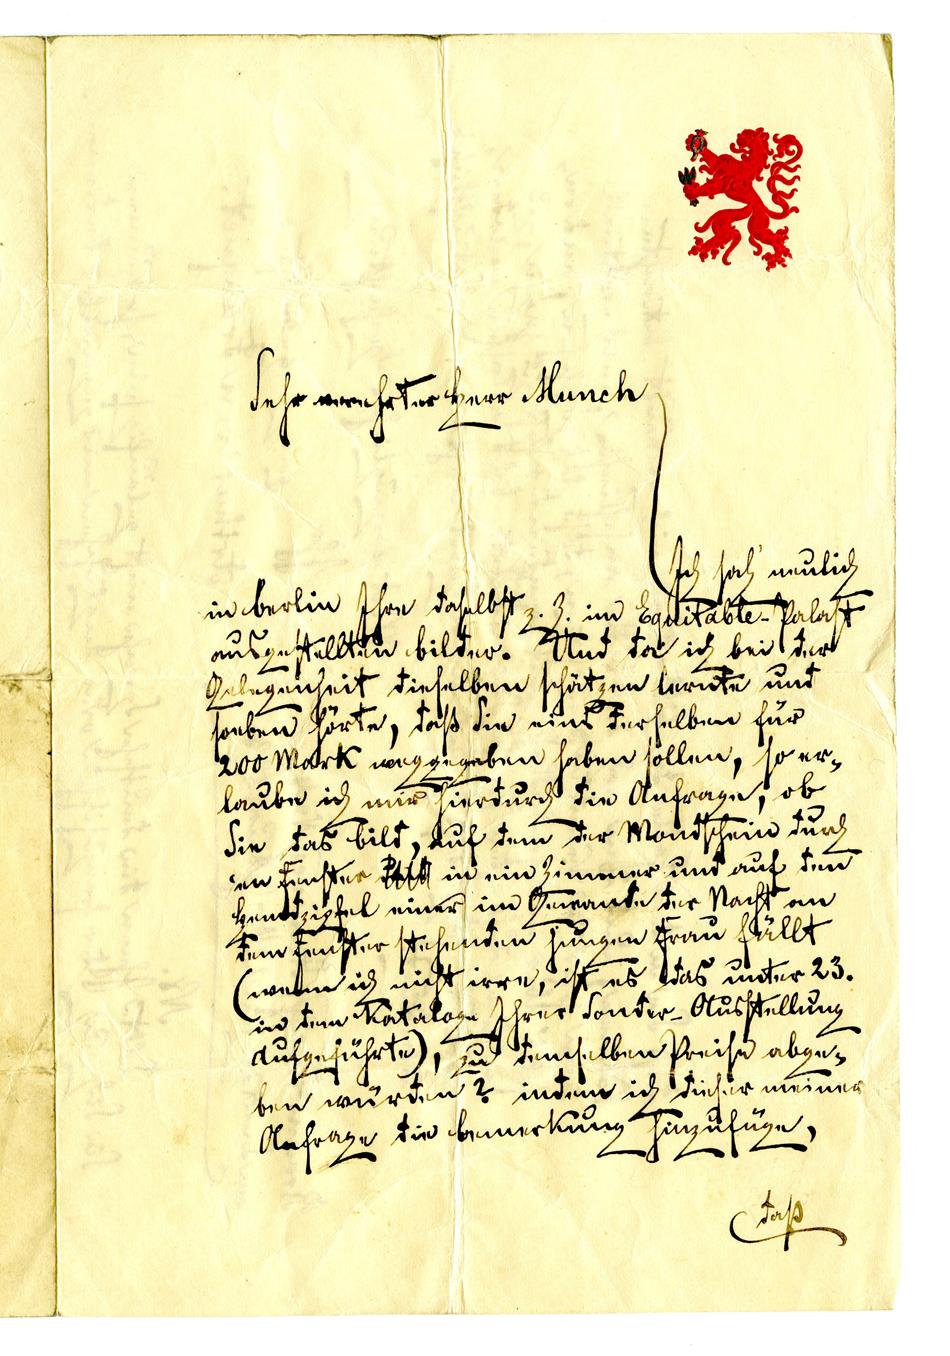 Sehr verehrter Herr Munch
Ich sah' neulich
in berlin Ihre daselbst z. Z. im Equitable-Palast
ausgestellten bilder. Und da ich bei der
Gelegenheit dieselben schätzen lernte und
soeben hörte, daß Sie eins derselben für
200 Mark weggegeben haben sollen, so er-
laube ich mir hierdurch die Anfrage, ob
Sie das bild, auf dem der Mondschein durch
'en Fenster in ein Zimmer und auf den
Hemdzipfel einer im Gewande der Nacht an
dem Fenster stehenden jungen Frau fällt
(wenn ich nicht irre, ist es das unter 23.
in dem Kataloge Ihrer Sonder-Ausstellung
Aufgeführte), zu demselben Preise abge-
ben würden? indem ich dieser meiner
Anfrage die bemerkung hinzufüge,
daß